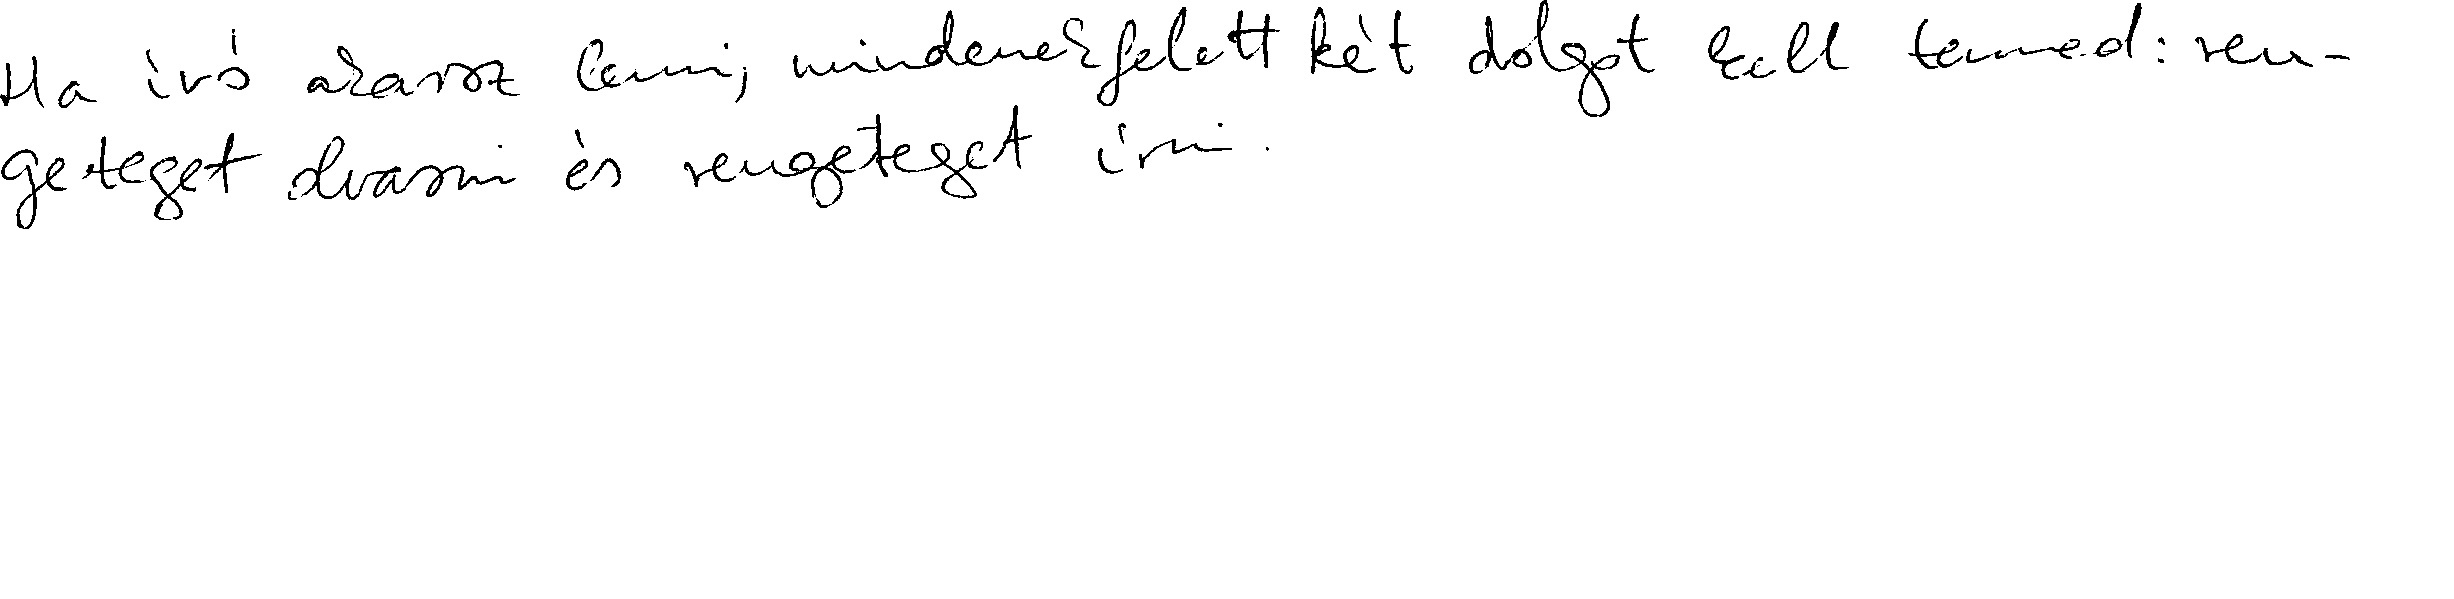 Ha író akarsz lenni, mindenekfelett két dolgot kell tenned: ren-
geteget olvasni és rengeteget írni.